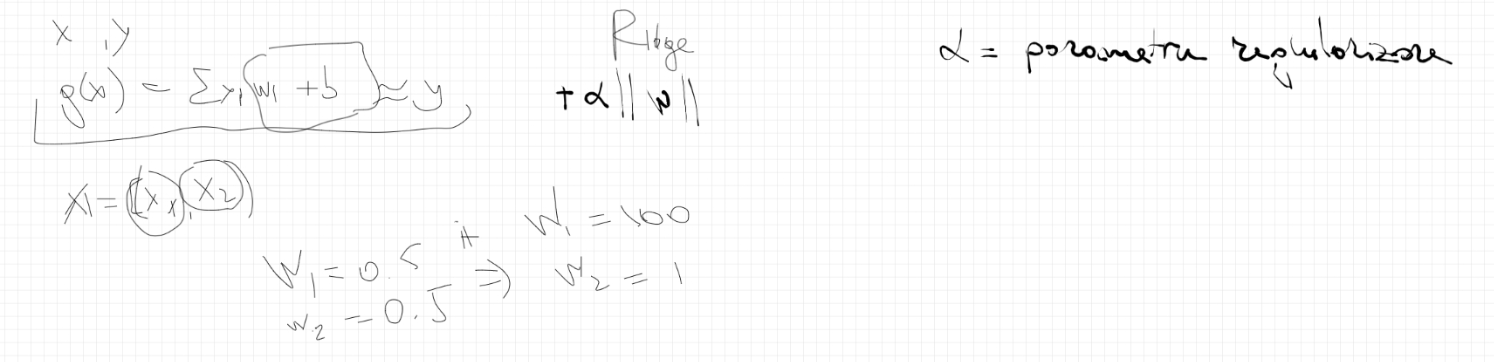 x , y
g(x) = Σ x₁ w₁ + b ≈ y
Ridge
+ α || w ||
α = parametru regularizare
x₁ = (x₁, x₂)
w₁ = 0.5
w₂ = 0.5
it
⇒
w₁ = 100
w₂ = 1